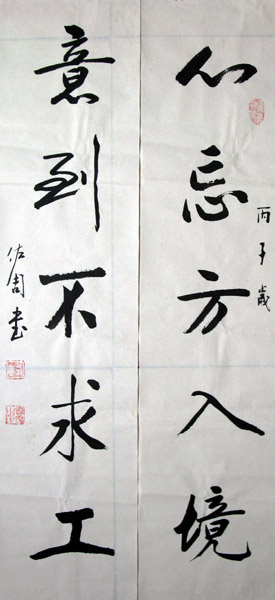 丙子歲
心忘方入境
意到不求工
佐周書